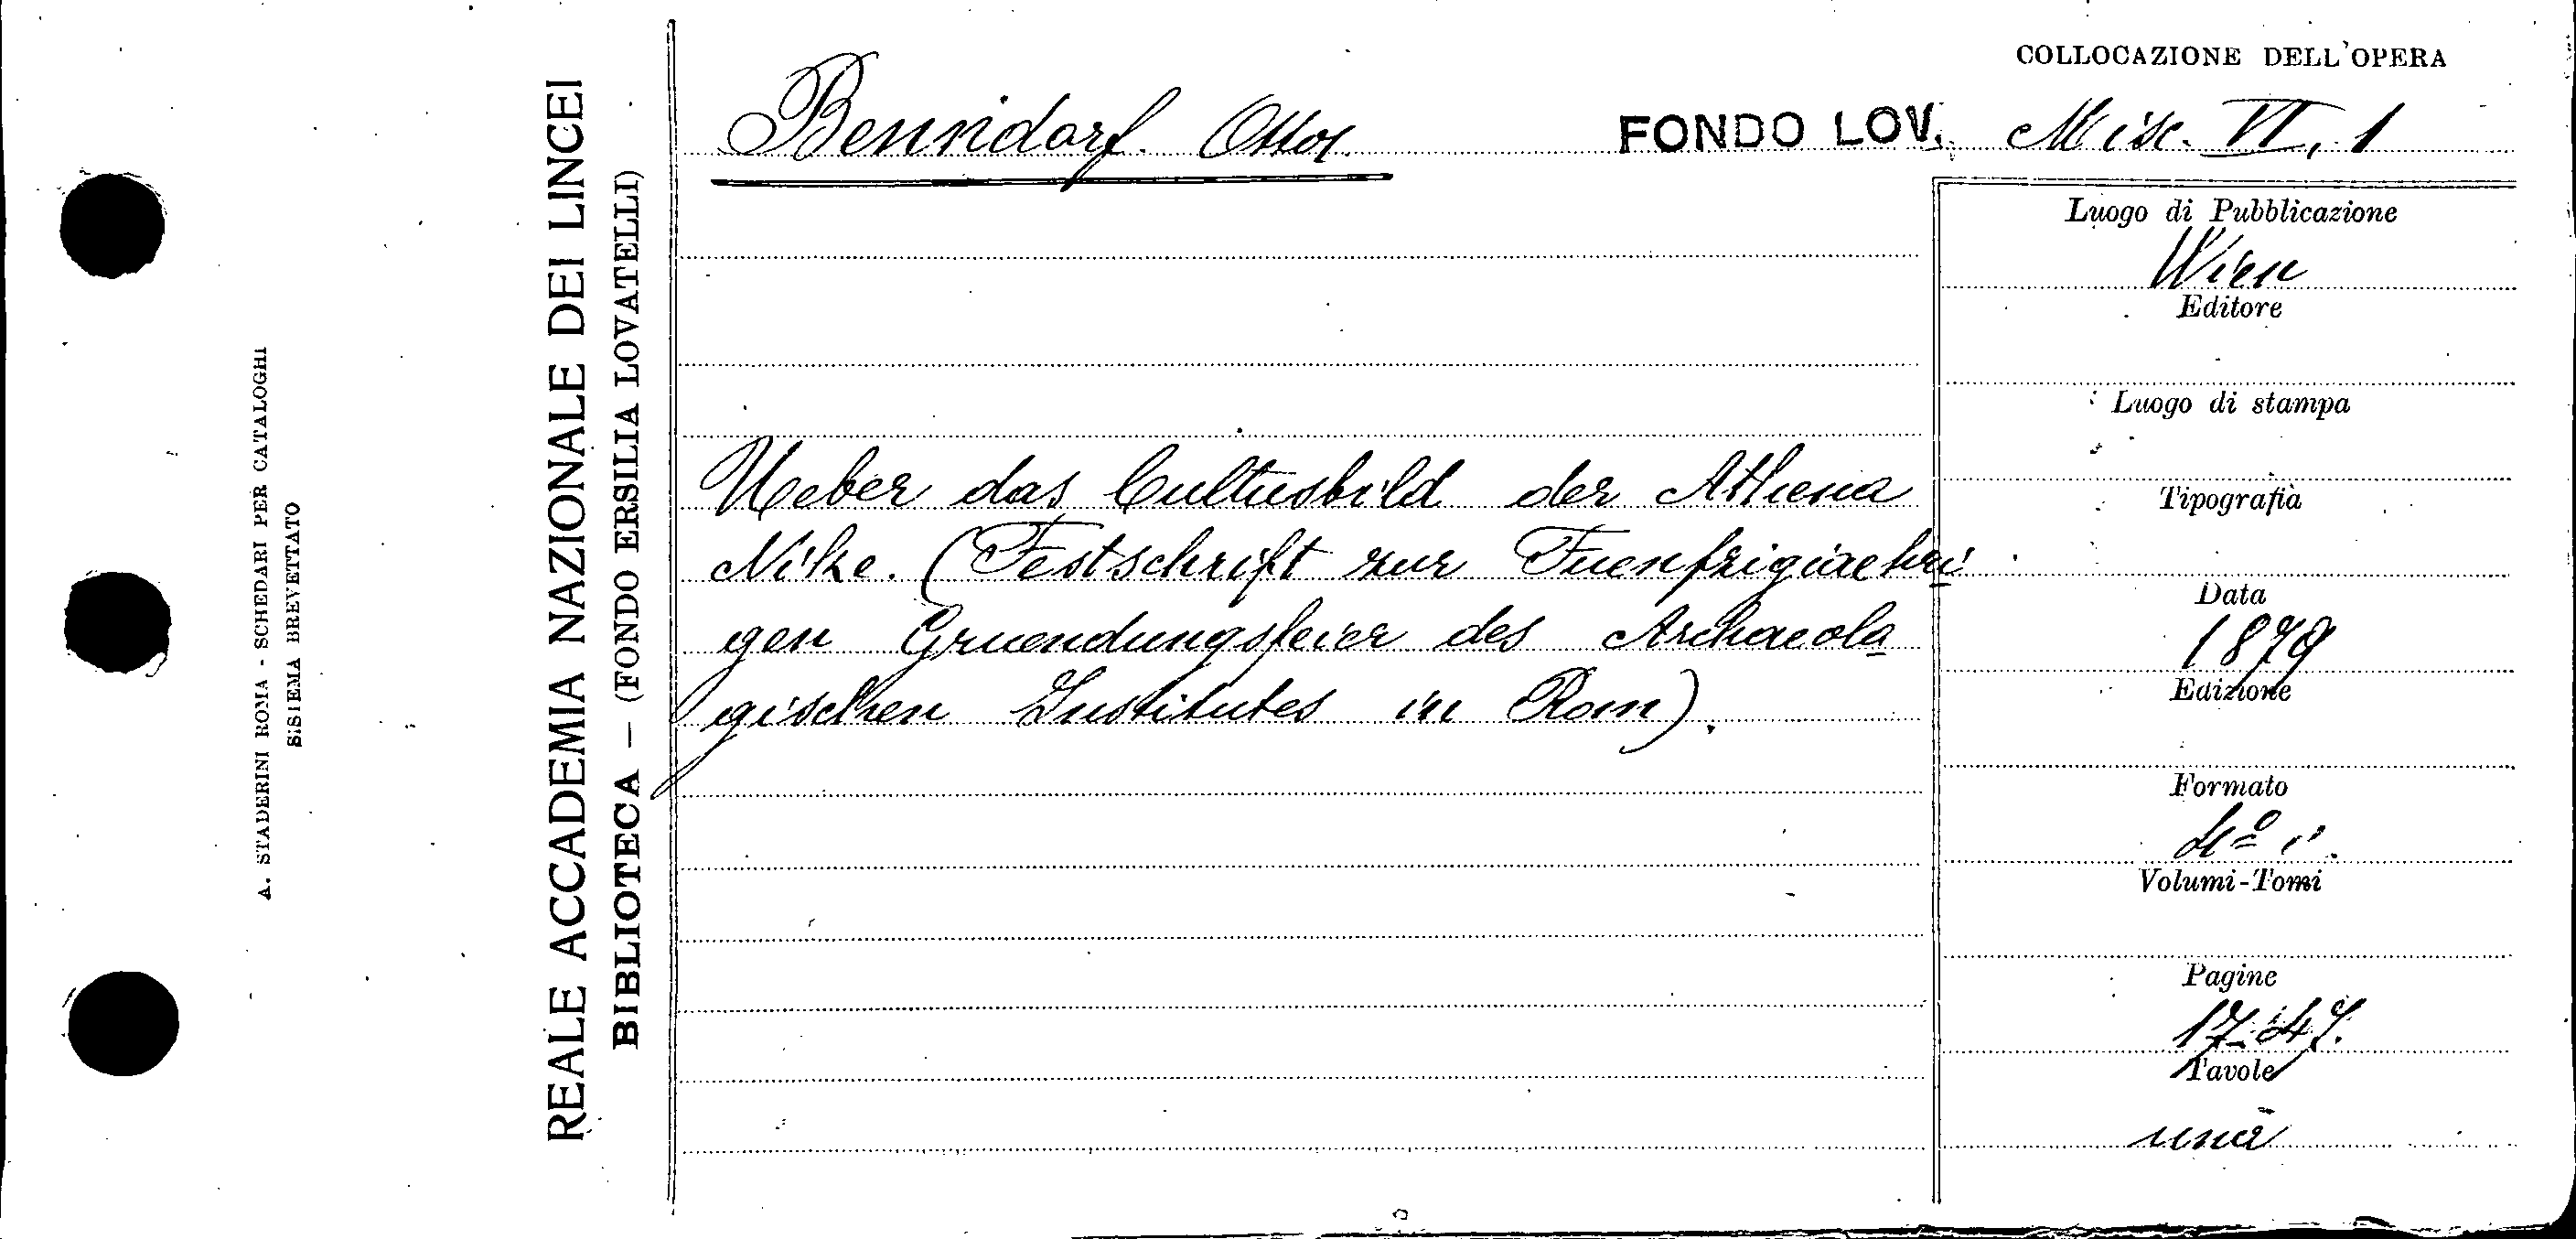 COLLOCAZIONE DELL'OPERA
Benndorf. Otto.
FONDO LOV. Misc. VI, 1
Luogo di Pubblicazione
Wien
Editore
Luogo di stampa
Tipografia
Data
1879
Edizione
Formato
4º
Volumi-Tomi
Pagine
17-47.
Tavole
una
Ueber das Cultusbild der Athena
Nike. (Festschrift zur Fuenfzigiaehri
gen Gruendungsfeier des Archaeolo
gischen Institutes in Rom).
REALE ACCADEMIA NAZIONALE DEI LINCEI
BIBLIOTECA — (FONDO ERSILIA LOVATELLI)
A. STADERINI ROMA - SCHEDARI PER CATALOGHI
SISTEMA BREVETTATO